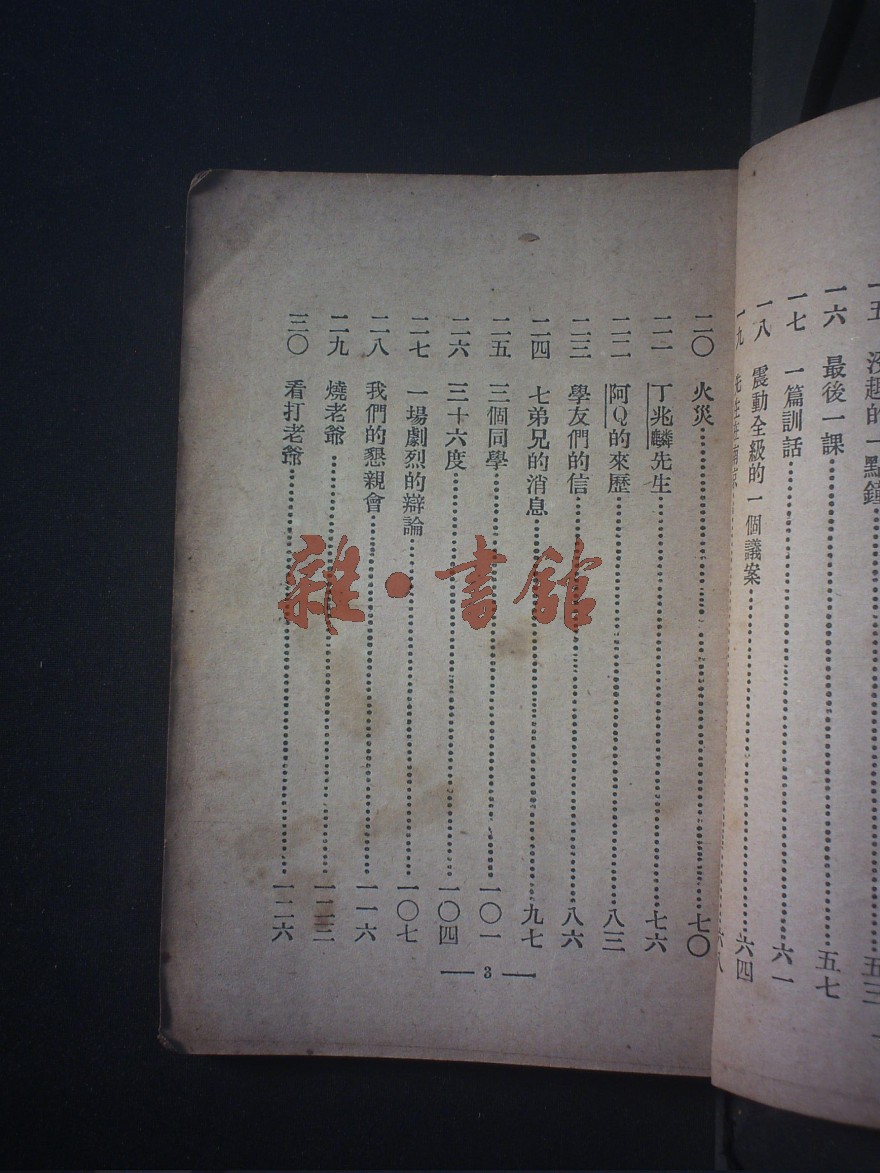 一五 沒趣的一點鐘……五三
一六 最後一課……五七
一七 一篇訓話……六一
一八 震動全級的一個議案……六四
一九 先生在南京……六八
二〇 火災……七〇
二一 丁兆麟先生……七六
二二 阿Q的來歷……八三
二三 學友們的信……八六
二四 七弟兄的消息……九七
二五 三個同學……一〇一
二六 三十六度……一〇四
二七 一場劇烈的辯論……一〇七
二八 我們的懇親會……一一六
二九 燒老爺……一二三
三〇 看打老爺……一二六
— 3 —
雜·書館